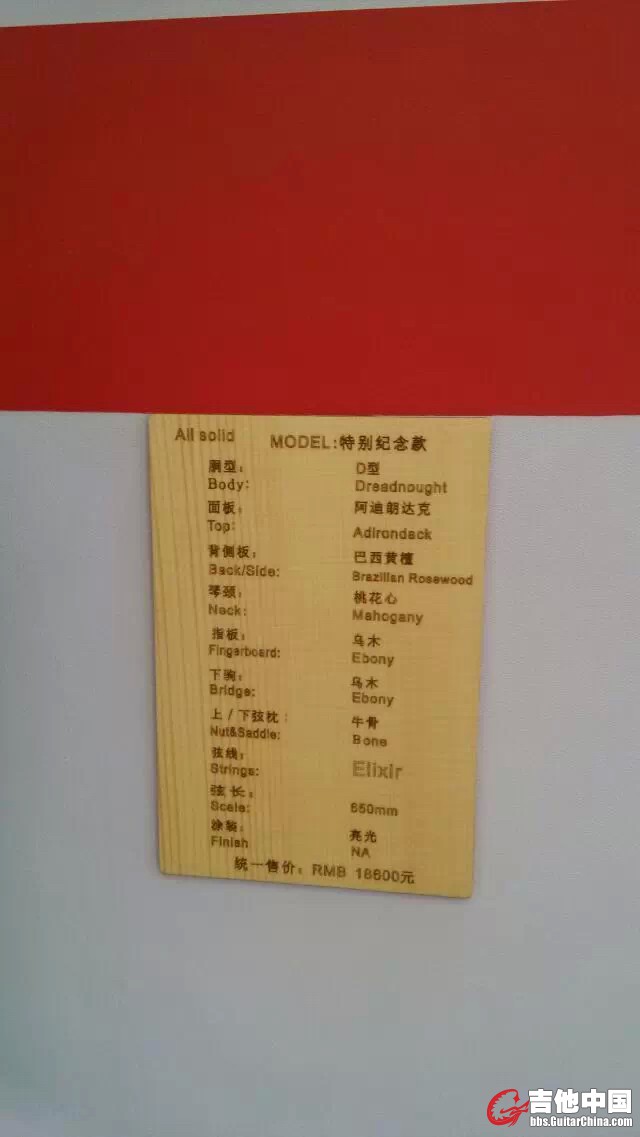 All solid MODEL:特别纪念款
胴型： D型
Body: Dreadnought
面板： 阿迪朗达克
Top: Adirondack
背侧板： 巴西黄檀
Back/Side: Brazilian Rosewood
琴颈： 桃花心
Neck: Mahogany
指板： 乌木
Fingerboard: Ebony
下驹： 乌木
Bridge: Ebony
上/下弦枕： 牛骨
Nut&Saddle: Bone
弦线： Elixir
Strings:
弦长：
Scale: 650mm
涂装： 亮光
Finish NA
统一售价：RMB 18600元
吉他中国
bbs.GuitarChina.com